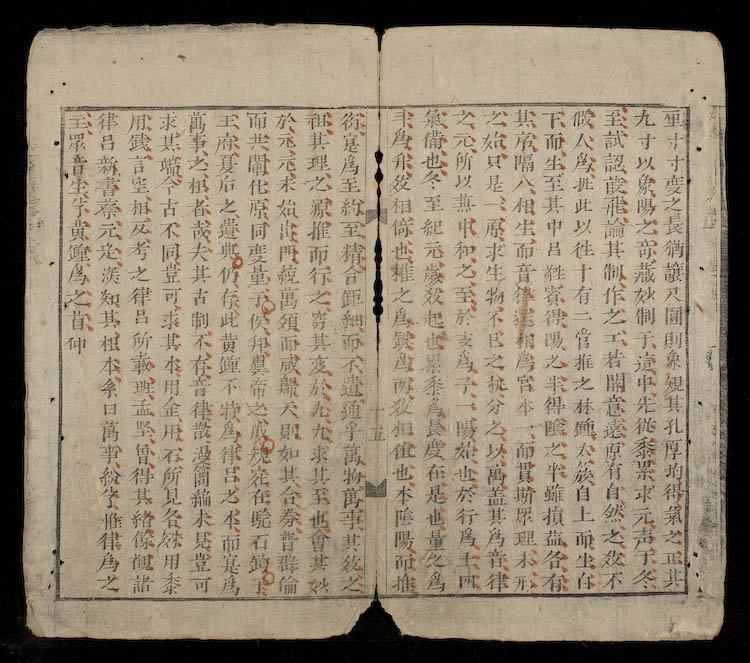 重寸寸度之長猶讓尺圖則象規其孔厚均得氣之正其
九寸以象陽之奇藏妙制于這中先從黍累求元声于冬
至試認葭飛論其制作之工若閑意遠原有自然之数不
假人爲推此以往十有二管推之林鍾太簇自上而生自
下而生至其中吕蕤賓得陽之半得陰之半雖損益各有
其序隔八相生而音律迭相爲宫本一而貫斯眾理未形
之始只是一原求生物不已之機分之以萬盖其爲音律
之元所以無中和之至於支爲子一陽始也於行爲土四
氣備也冬至紀元歲效起也累黍爲長度在是也量之爲
升爲㪷效相倚也權之爲銖爲兩效相值也本陰陽而推
衍寔爲至約至精合鉅細而不遺通乎萬物萬事其效之
祖其理之源推而行之窮其変於九九求其至也會其妙
於元元未始出門統萬須而咸歸天則如其合券普群倫
而共闡化原同度量于侯邦虞帝之成規宛在聡石鈞于
王府夏后之遺典仍存此黄鍾不特爲律吕之本而寔爲
萬事之祖者哉夫其古制不存音律散漫簡編未見豈可
求其端今古不同豈可求其本用金用石所見各殊用黍
用鉄言空相反考之律吕所載班孟堅曾得其緒餘觀諸
律吕新書蔡元定深知其祖本系曰萬事紛兮惟律爲之
主眾音生兮黄鐘爲之首仲
十五